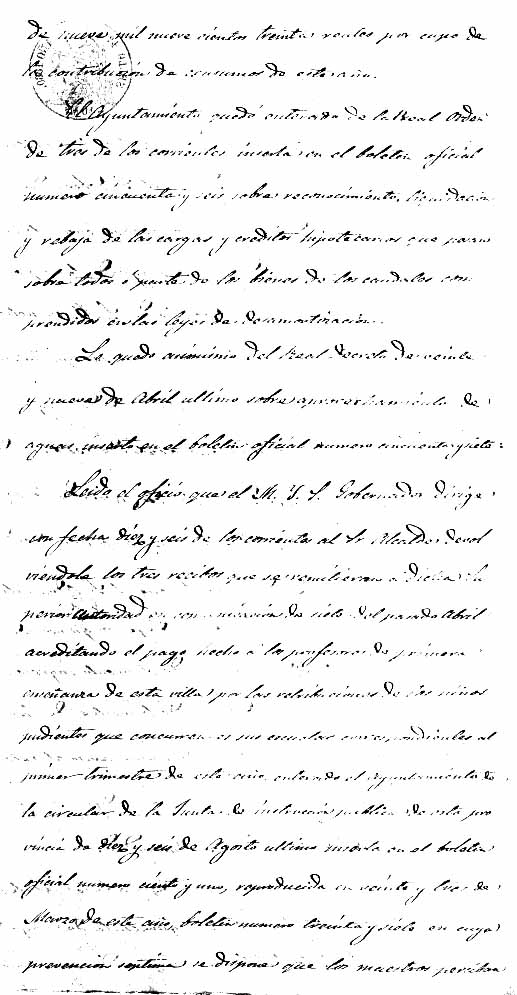 de nueve mil nueve cientos treinta reales por cupo de
la contribución de consumos de este año.
El Ayuntamiento quedó enterado de la Real Orden
de tres de los corrientes inserta en el boletin oficial
numero cincuenta y seis sobre reconocimiento, liquidacion
y rebaja de las cargas y creditos hipotecarios que pesan
sobre todos o parte de los bienes de los caudales com
prendidos en las leyes de desamortizacion.
Lo quedó asimismo del Real decreto de veinte
y nueve de Abril ultimo sobre aprovechamiento de
aguas inserto en el boletin oficial numero cincuenta y siete
Leido el oficio que el M. I. S. Gobernador dirige
con fecha diez y seis de los corrientes al Sr Alcalde devol
viendole los tres recibos que se remitieron a dicha Su
perior autoridad en comunicación de siete del pasado Abril
acreditando el pago hecho a los profesores de primera
enseñanza de esta villa por las retribuciones de los niños
pudientes que concurren a sus escuelas correspondientes al
primer trimestre de este año, enterado el Ayuntamiento de
la circular de la Junta de instruccion publica de esta pro
vincia de diez y seis de Agosto ultimo inserta en el boletin
oficial numero ciento y uno, reproducida en veinte y tres de
Marzo de este año, boletin numero treinta y siete en cuya
prevencion septima se dispone que los maestros perciban